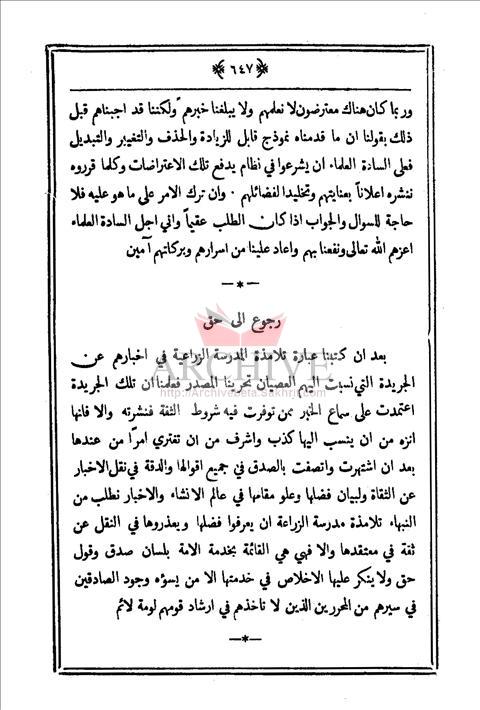 ﴿٦٤٧﴾
وربما كان هناك معترضون لا نعلمهم ولا يبلغنا خبرهم ولكننا قد اجبناهم قبل
ذلك بقولنا ان ما قدمناه نموذج قابل للزيادة والحذف والتغيير والتبديل
فعلى السادة العلماء ان يشرعوا في نظام يدفع تلك الاعتراضات وكلما قرروه
ننشره اعلاناً بعنايتهم وتخليدا لفضائلهم ٠ وان ترك الامر على ما هو عليه فلا
حاجة للسوال والجواب اذا كان الطلب عقيماً واني اجل السادة العلماء
اعزهم الله تعالى ونفعنا بهم واعاد علينا من اسرارهم وبركاتهم آمين
—*—
رجوع الى حق
بعد ان كتبنا عبارة تلامذة المدرسة الزراعية في اخبارهم عن
ARCHIVE
الجريدة التي نسبت اليهم العصيان تحرينا المصدر فعلمنا ان تلك الجريدة
http://Archivebeta.Sakhrit.com
اعتمدت على سماع الخبر ممن توفرت فيه شروط الثقة فنشرته والا فانها
انزه من ان ينسب اليها كذب واشرف من ان تفتري امرًا من عندها
بعد ان اشتهرت واتصفت بالصدق في جميع اقوالها والدقة في نقل الاخبار
عن الثقاة ولبيان فضلها وعلو مقامها في عالم الانشاء والاخبار نطلب من
النبهاء تلامذة مدرسة الزراعة ان يعرفوا فضلها ويعذروها في النقل عن
ثقة في معتقدها والا فهي هي القائمة بخدمة الامة بلسان صدق وقول
حق ولا ينكر عليها الاخلاص في خدمتها الا من يسؤه وجود الصادقين
في سيرهم من المحررين الذين لا تاخذهم في ارشاد قومهم لومة لائم
—*—